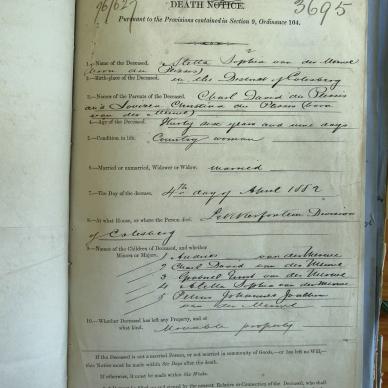 96/627
DEATH NOTICE.
3695
Pursuant to the Provisions contained in Section 9, Ordinance 104.
1.—Name of the Deceased. Aletta Sophia van der Merwe
(born du Plessis)
2.—Birth-place of the Deceased. in the District of Colesberg
3.—Names of the Parents of the Deceased. Charl David du Plessis
and Christina du Plessis (born
van der Merwe)
4.—Age of the Deceased. Thirty six years and nine days
5.—Condition in life. Country woman
6.—Married or unmarried, Widower or Widow. married
7.—The Day of the decease. 4th day of April 1882
8.—At what House, or where the Person died. Division
of Colesberg
9.—Names of the Children of Deceased, and whether
Minors or Majors.
1 Andries van der Merwe
2 Charl David van der Merwe
3 van der Merwe
4 Aletta Sophia van der Merwe
5 Petrus Johannes
van der Merwe
10.—Whether Deceased has left any Property, and of
what kind. Movable property
If the Deceased is not a married Person, or not married in community of Goods,—or has left no Will,—
this Notice must be made within Six Days after the Death.
If otherwise, it must be made within Six Weeks.